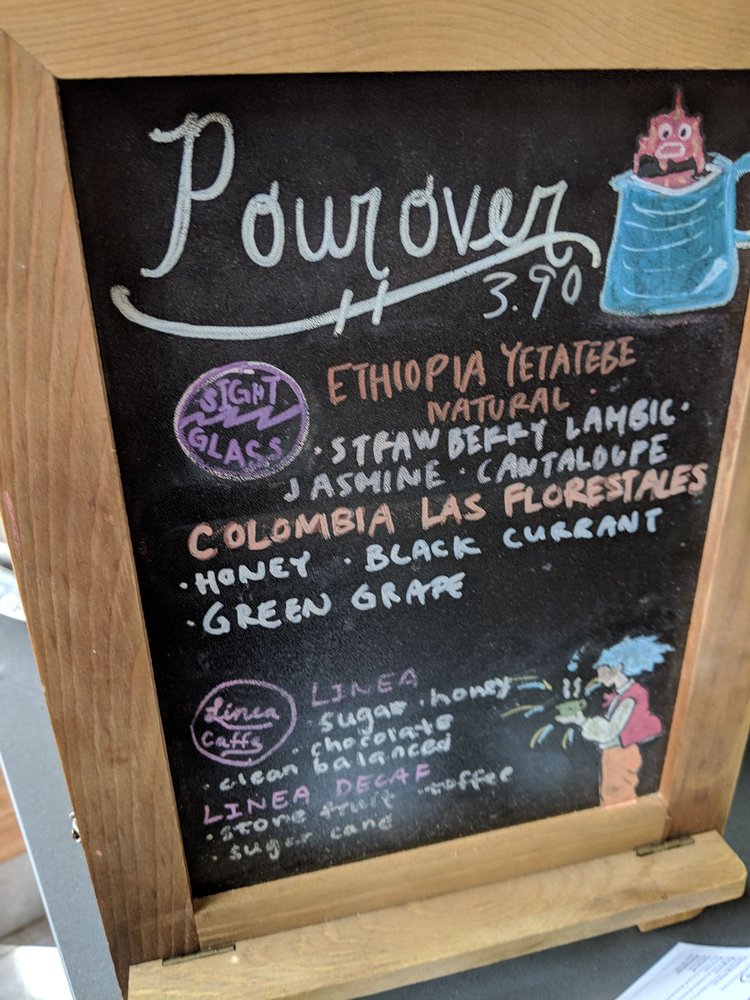 Pourover
3.90
SIGHT
GLASS
ETHIOPIA YETATEBE
NATURAL
· STRAWBERRY LAMBIC ·
JASMINE · CANTALOUPE
COLOMBIA LAS FLORESTALES
· HONEY · BLACK CURRANT
· GREEN GRAPE
Linea
Caffe
LINEA
· sugar · honey
· chocolate
· clean balanced
LINEA DECAF
· stone fruit · toffee
· sugar cane